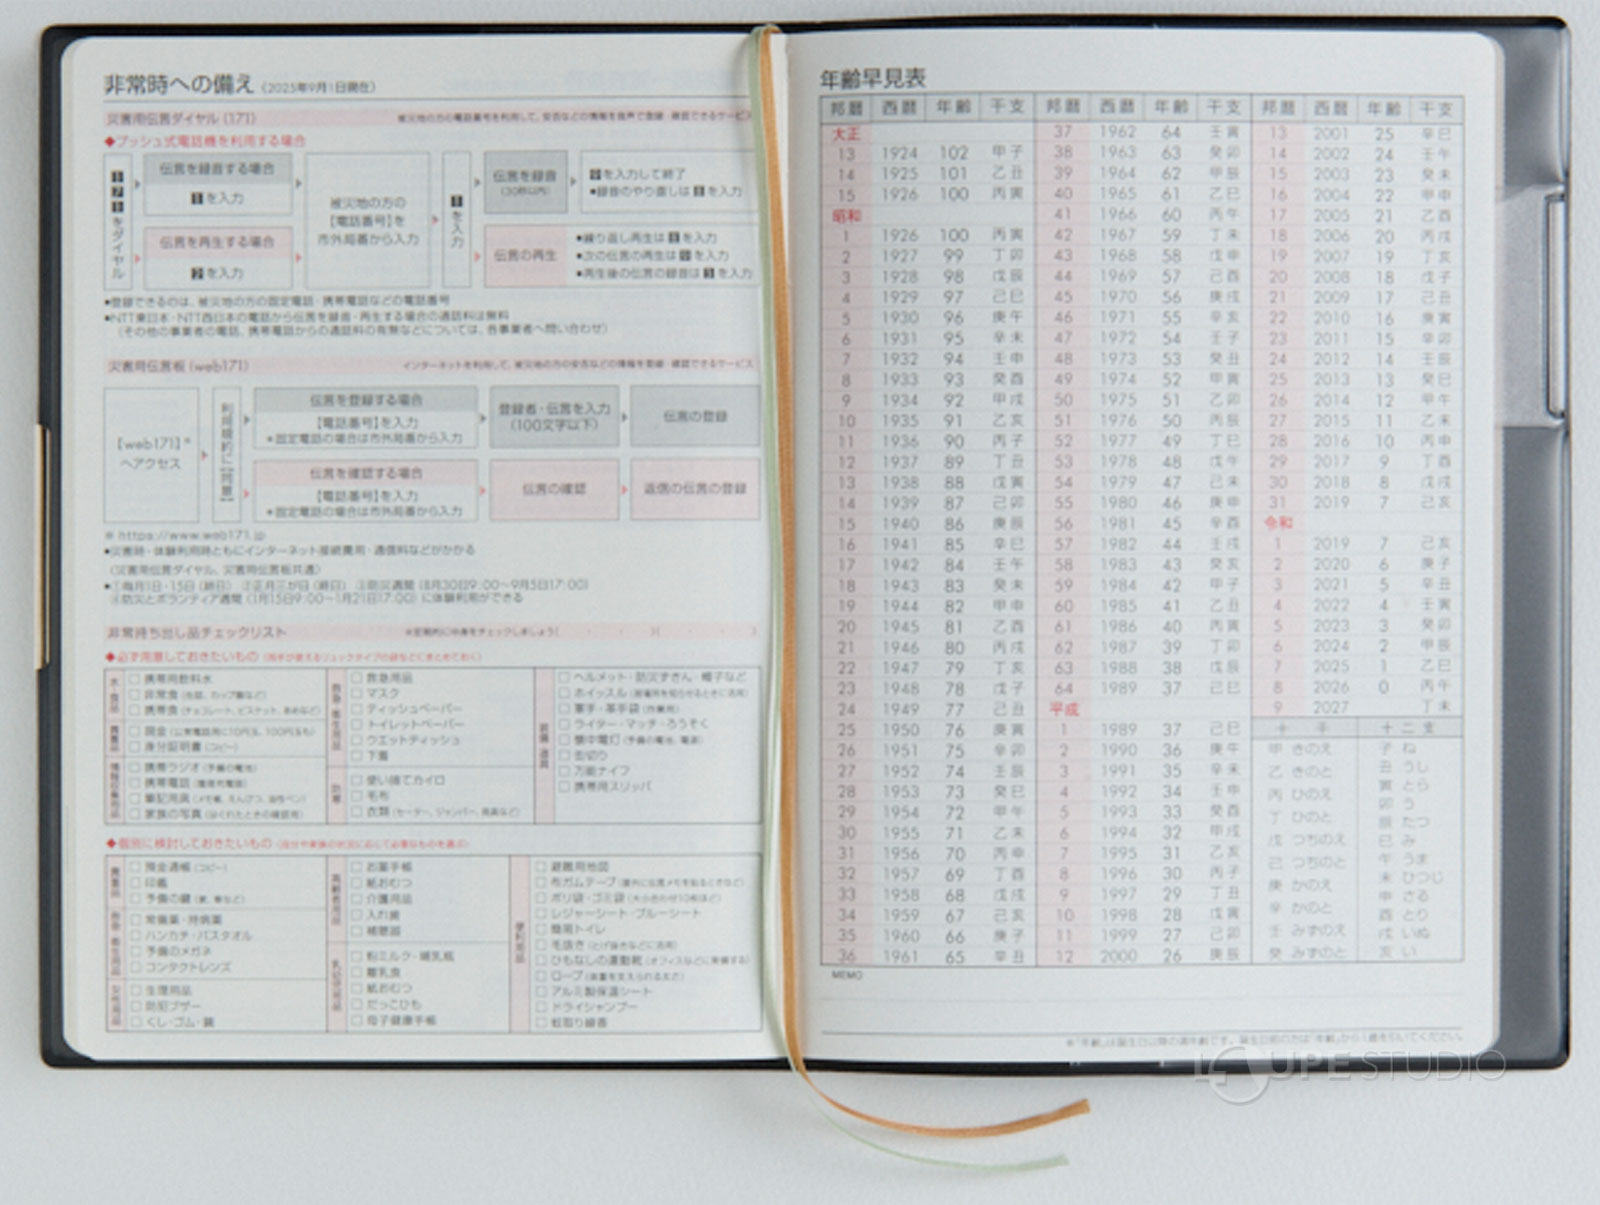 非常時への備え (2025年9月1日現在)
災害用伝言ダイヤル (171) 被災地の方の電話番号を利用して、安否などの情報を音声で登録・確認できるサービス
◆プッシュ式電話機を利用する場合
171をダイヤル
伝言を録音する場合
1を入力
伝言を再生する場合
2を入力
被災地の方の
【電話番号】を
市外局番から入力
1を入力
伝言を録音
(30秒以内)
9を入力して終了
●録音のやり直しは8を入力
伝言の再生
●繰り返し再生は8を入力
●次の伝言の再生は9を入力
●再生後の伝言の録音は3を入力
●登録できるのは、被災地の方の固定電話・携帯電話などの電話番号
●NTT東日本・NTT西日本の電話から伝言を録音・再生する場合の通話料は無料
(その他の事業者の電話、携帯電話からの通話料の有無などについては、各事業者へ問い合わせ)
災害用伝言板 (web171) インターネットを利用して、被災地の方の安否などの情報を登録・確認できるサービス
【web171】※
へアクセス
利用規約に【同意】
伝言を登録する場合
【電話番号】を入力
＊固定電話の場合は市外局番から入力
登録者・伝言を入力
(100文字以下)
伝言の登録
伝言を確認する場合
【電話番号】を入力
＊固定電話の場合は市外局番から入力
伝言の確認
返信の伝言の登録
※ https://www.web171.jp
●災害時・体験利用時ともにインターネット接続費用・通信料などがかかる
(災害用伝言ダイヤル、災害用伝言板共通)
●①毎月1日・15日 (終日) ②正月三が日 (終日) ③防災週間 (8月30日9:00～9月5日17:00)
④防災とボランティア週間 (1月15日9:00～1月21日17:00) に体験利用ができる
非常持ち出し品チェックリスト ※定期的に中身をチェックしましょう( ・ ・ )( ・ ・ )
◆必ず用意しておきたいもの (両手が使えるリュックタイプの袋などにまとめておく)
水・食品
□ 携帯用飲料水
□ 非常食 (缶詰、カップ麺など)
□ 携帯食 (チョコレート、ビスケット、あめなど)
貴重品
□ 現金 (公衆電話用に10円玉、100円玉も)
□ 身分証明書 (コピー)
情報収集用品
□ 携帯ラジオ (予備の電池)
□ 携帯電話
□ 筆記用具 (メモ帳、えんぴつ、油性ペン)
□ 家族の写真 (はぐれたときの確認用)
救急・衛生用品
□ 救急用品
□ マスク
□ ティッシュペーパー
□ トイレットペーパー
□ ウエットティッシュ
□ 下着
防寒
□ 使い捨てカイロ
□ 毛布
□ 衣類 (セーター、ジャンパー、雨具など)
装備・道具
□ ヘルメット・防災ずきん・帽子など
□ ホイッスル (居場所を知らせるときに活用)
□ 軍手・革手袋 (作業用)
□ ライター・マッチ・ろうそく
□ 懐中電灯 (予備の電池、電源)
□ 缶切り
□ 万能ナイフ
□ 携帯用スリッパ
◆個別に検討しておきたいもの (自分や家族の状況に応じて必要なものを選ぶ)
貴重品
□ 預金通帳 (コピー)
□ 印鑑
□ 予備の鍵 (家、車など)
救急・衛生用品
□ 常備薬・持病薬
□ ハンカチ・バスタオル
□ 予備のメガネ
□ コンタクトレンズ
女性用品
□ 生理用品
□ 防犯ブザー
□ くし・ゴム・鏡
高齢者用品
□ お薬手帳
□ 紙おむつ
□ 介護用品
□ 入れ歯
□ 補聴器
乳幼児用品
□ 粉ミルク・哺乳瓶
□ 離乳食
□ 紙おむつ
□ だっこひも
□ 母子健康手帳
便利用品
□ 避難用地図
□ 布ガムテープ (屋外に伝言メモを貼るときなど)
□ ポリ袋・ゴミ袋 (大小合わせ10枚ほど)
□ レジャーシート・ブルーシート
□ 簡易トイレ
□ 毛抜き (とげ抜きなどに活用)
□ ひもなしの運動靴 (オフィスなどに常備する)
□ ロープ (体重を支えられる太さ)
□ アルミ製保温シート
□ ドライシャンプー
□ 蚊取り線香
年齢早見表
邦暦 西暦 年齢 干支
大正
13 1924 102 甲子
14 1925 101 乙丑
15 1926 100 丙寅
昭和
1 1926 100 丙寅
2 1927 99 丁卯
3 1928 98 戊辰
4 1929 97 己巳
5 1930 96 庚午
6 1931 95 辛未
7 1932 94 壬申
8 1933 93 癸酉
9 1934 92 甲戌
10 1935 91 乙亥
11 1936 90 丙子
12 1937 89 丁丑
13 1938 88 戊寅
14 1939 87 己卯
15 1940 86 庚辰
16 1941 85 辛巳
17 1942 84 壬午
18 1943 83 癸未
19 1944 82 甲申
20 1945 81 乙酉
21 1946 80 丙戌
22 1947 79 丁亥
23 1948 78 戊子
24 1949 77 己丑
25 1950 76 庚寅
26 1951 75 辛卯
27 1952 74 壬辰
28 1953 73 癸巳
29 1954 72 甲午
30 1955 71 乙未
31 1956 70 丙申
32 1957 69 丁酉
33 1958 68 戊戌
34 1959 67 己亥
35 1960 66 庚子
36 1961 65 辛丑
邦暦 西暦 年齢 干支
37 1962 64 壬寅
38 1963 63 癸卯
39 1964 62 甲辰
40 1965 61 乙巳
41 1966 60 丙午
42 1967 59 丁未
43 1968 58 戊申
44 1969 57 己酉
45 1970 56 庚戌
46 1971 55 辛亥
47 1972 54 壬子
48 1973 53 癸丑
49 1974 52 甲寅
50 1975 51 乙卯
51 1976 50 丙辰
52 1977 49 丁巳
53 1978 48 戊午
54 1979 47 己未
55 1980 46 庚申
56 1981 45 辛酉
57 1982 44 壬戌
58 1983 43 癸亥
59 1984 42 甲子
60 1985 41 乙丑
61 1986 40 丙寅
62 1987 39 丁卯
63 1988 38 戊辰
64 1989 37 己巳
平成
1 1989 37 己巳
2 1990 36 庚午
3 1991 35 辛未
4 1992 34 壬申
5 1993 33 癸酉
6 1994 32 甲戌
7 1995 31 乙亥
8 1996 30 丙子
9 1997 29 丁丑
10 1998 28 戊寅
11 1999 27 己卯
12 2000 26 庚辰
邦暦 西暦 年齢 干支
13 2001 25 辛巳
14 2002 24 壬午
15 2003 23 癸未
16 2004 22 甲申
17 2005 21 乙酉
18 2006 20 丙戌
19 2007 19 丁亥
20 2008 18 戊子
21 2009 17 己丑
22 2010 16 庚寅
23 2011 15 辛卯
24 2012 14 壬辰
25 2013 13 癸巳
26 2014 12 甲午
27 2015 11 乙未
28 2016 10 丙申
29 2017 9 丁酉
30 2018 8 戊戌
31 2019 7 己亥
令和
1 2019 7 己亥
2 2020 6 庚子
3 2021 5 辛丑
4 2022 4 壬寅
5 2023 3 癸卯
6 2024 2 甲辰
7 2025 1 乙巳
8 2026 0 丙午
9 2027 丁未
十干
甲 きのえ
乙 きのと
丙 ひのえ
丁 ひのと
戊 つちのえ
己 つちのと
庚 かのえ
辛 かのと
壬 みずのえ
癸 みずのと
十二支
子 ね
丑 うし
寅 とら
卯 う
辰 たつ
巳 み
午 うま
未 ひつじ
申 さる
酉 とり
戌 いぬ
亥 い
MEMO
※「年齢」は誕生日以降の満年齢です。誕生日前の方は「年齢」から1歳を引いてください。
LOUPE STUDIO